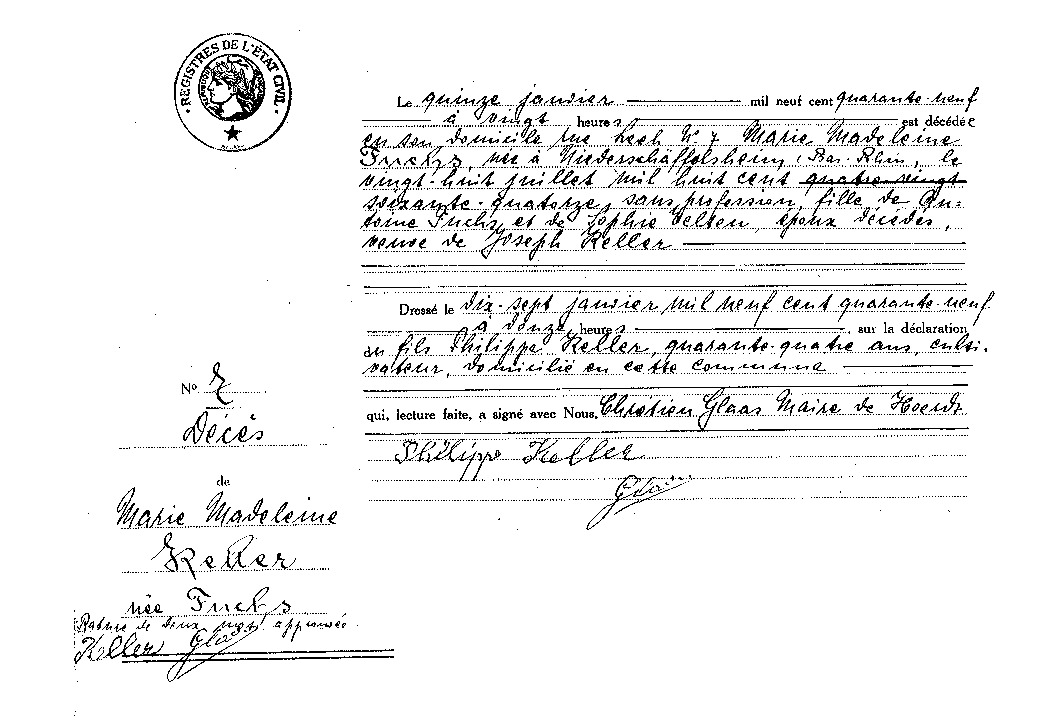 REGISTRES DE L'ÉTAT CIVIL
Le quinze janvier mil neuf cent quarante-neuf
à vingt heures est décédée
en son domicile rue Lech N° 7 Marie Madeleine
Fuchs, née à Niederschäffolsheim, (Bas-Rhin, le
vingt-huit juillet mil huit cent quatre vingt
soixante-quatorze, sans profession, fille de An-
toine Fuchs et de Sophie Velten, époux décédés,
veuve de Joseph Keller
Dressé le dix-sept janvier mil neuf cent quarante-neuf
à douze heures, sur la déclaration
du fils Philippe Keller, quarante-quatre ans, culti-
vateur, domicilié en cette commune
qui, lecture faite, a signé avec Nous, Chrétien Glaas Maire de Hoerdt
Philippe Keller
Glaas
N° 7
Décès
de
Marie Madeleine
Keller
née Fuchs
Rature de deux mots approuvée.
Keller Glaas